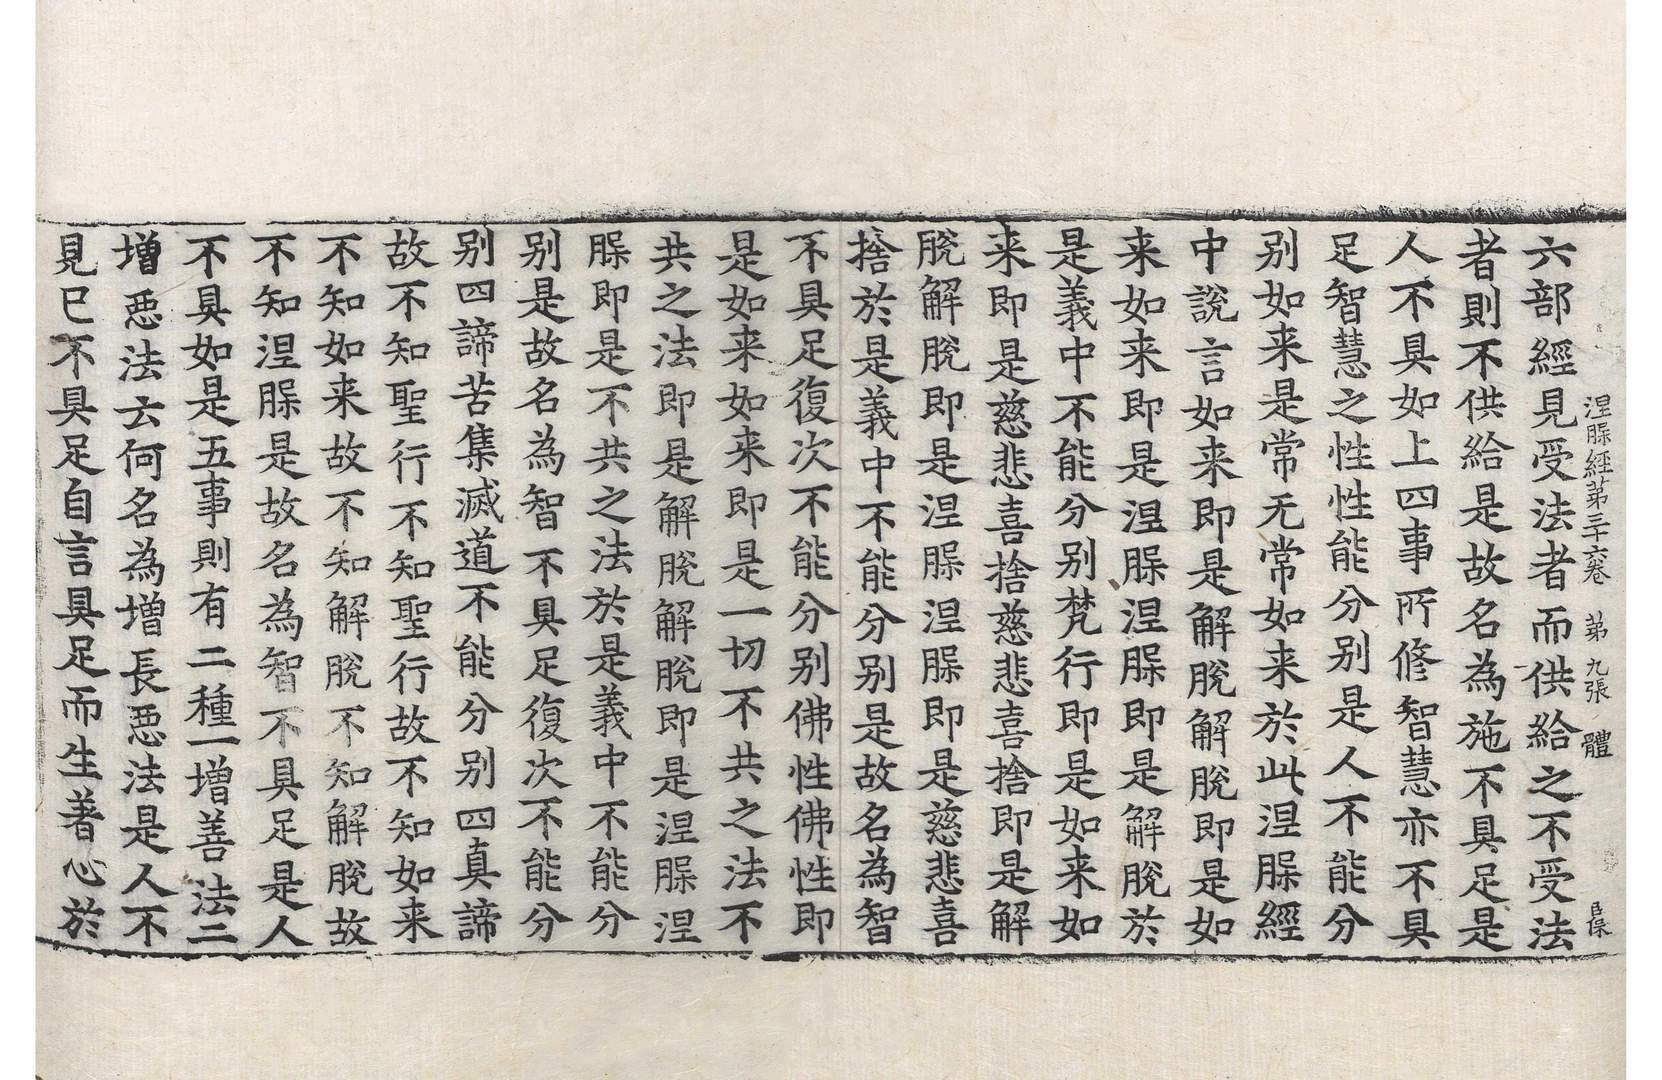 涅槃經第三十六卷 第九張 體
六部經見受法者而供給之不受法
者則不供給是故名為施不具足是
人不具如上四事所修智慧亦不具
足智慧之性性能分别是人不能分
别如来是常无常如来於此涅槃經
中說言如来即是解脫解脫即是如
来如来即是涅槃涅槃即是解脫於
是義中不能分别梵行即是如来如
来即是慈悲喜捨慈悲喜捨即是解
脫解脫即是涅槃涅槃即是慈悲喜
捨於是義中不能分别是故名為智
不具足復次不能分别佛性佛性即
是如来如来即是一切不共之法不
共之法即是解脫解脫即是涅槃涅
槃即是不共之法於是義中不能分
别是故名為智不具足復次不能分
别四諦苦集滅道不能分别四真諦
故不知聖行不知聖行故不知如来
不知如来故不知解脫不知解脫故
不知涅槃是故名為智不具足是人
不具如是五事則有二種一增善法二
增惡法云何名為增長惡法是人不
見已不具足自言具足而生著心於